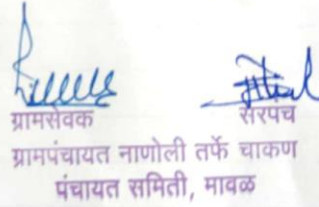 ग्रामसेवक सरपंच
ग्रामपंचायत नाणोली तर्फे चाकण
पंचायत समिती, मावळ